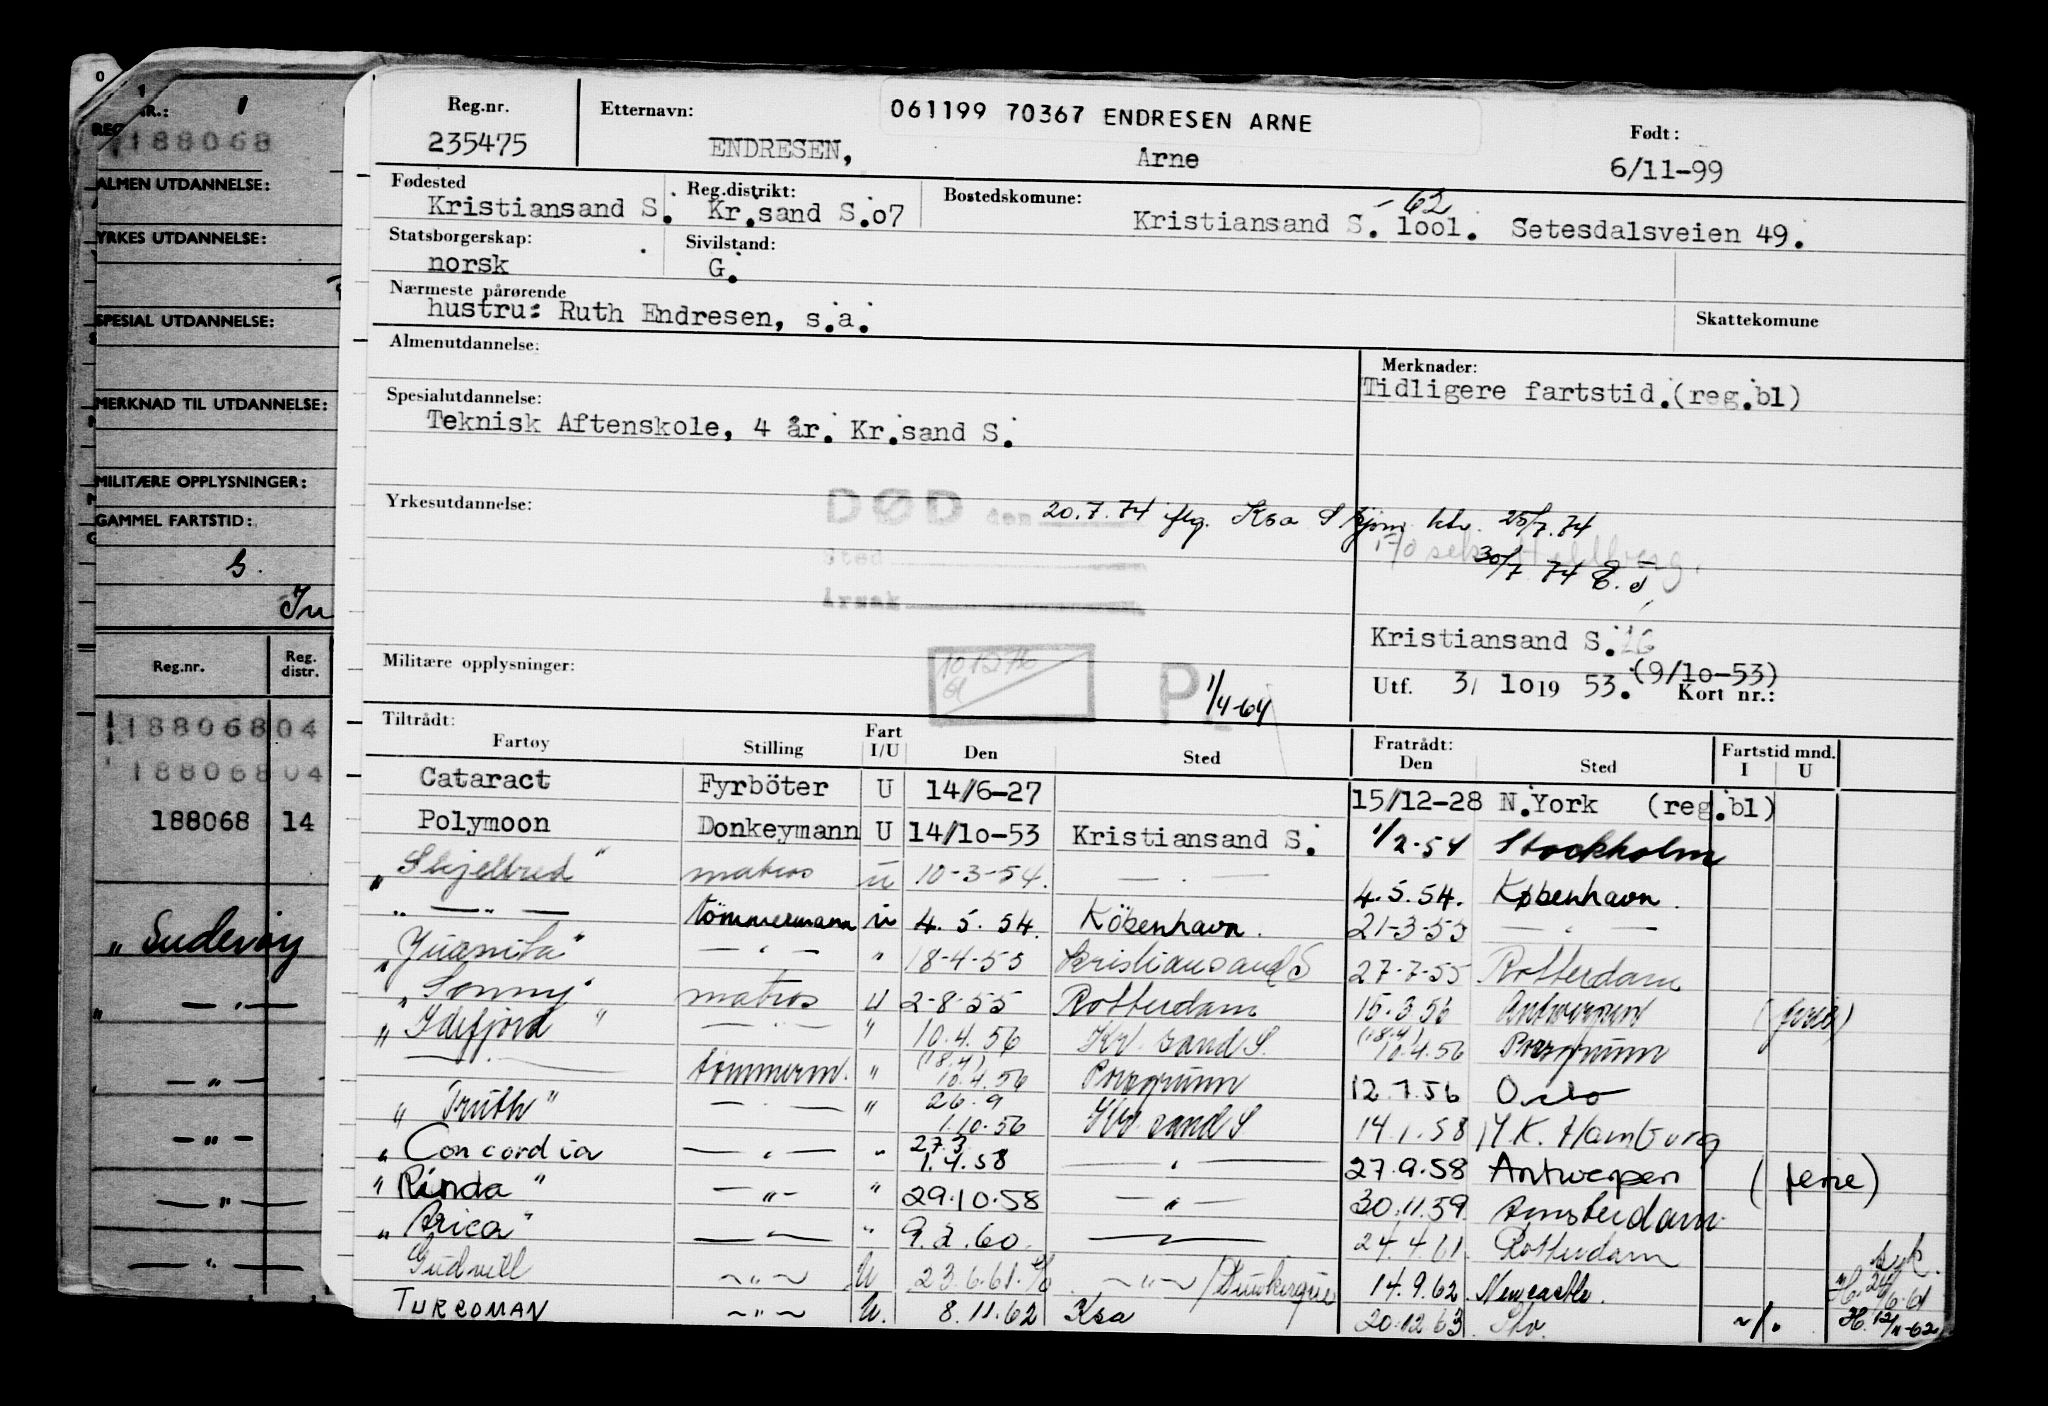 O
1
NR.: 1
REG
188068
ALMEN UTDANNELSE:
YRKES UTDANNELSE:
SPESIAL UTDANNELSE:
MERKNAD TIL UTDANNELSE:
MILITÆRE OPPLYSNINGER:
GAMMEL FARTSTID:
Reg.nr. Reg. distr.
188068 04
188068 04
188068 14
" Suderøy
" — " —
— " —
— " —
— " —
— " —
Reg.nr. Etternavn: 061199 70367 ENDRESEN ARNE Født:
235475 ENDRESEN, Arne 6/11-99
Fødested Reg.distrikt: Bostedskomune: -62
Kristiansand S. Kr.sand S.o7 Kristiansand S. lool. Setesdalsveien 49.
Statsborgerskap: Sivilstand:
norsk G.
Nærmeste pårørende
hustru: Ruth Endresen, s.a. Skattekomune
Almenutdannelse: Merknader:
Tidligere fartstid.(reg.bl)
Spesialutdannelse:
Teknisk Aftenskole, 4 år. Kr.sand S.
Yrkesutdannelse: DØD den 20.7.74 flg. Ksa Sjøm. ktr. 25/7.74
Sted 30/7 74
Årsak
Kristiansand S.
Militære opplysninger: P 1/4-64 Utf. 3/ lo19 53. (9/1o-53) Kort nr.:
Tiltrådt: Fratrådt: Fartstid mnd.
Fartøy Stilling Fart I/U Den Sted Den Sted I U
Cataract Fyrböter U 14/6-27 15/12-28 N.York (reg.bl)
Polymoon Donkeymann U 14/1o-53 Kristiansand S. 1/2-54 Stockholm
" Skjelbred " matros u 10-3-54. — " — 4.5.54. København.
" — " — tömmermann u 4.5.54. Köbenhavn. 21-3-55 — " —
" Juanita " — " — " 18-4-55 Kristiansand S 27-7-55 Rotterdam
" Sonny " matros U 2-8-55 Rotterdam 15.3.56 Antwerpen (ferie)
" Idefjord " — " — " 10.4.56 Kr. sand S. (18.4) 10.4.56 Porsgrunn
— " — tømmerm. " (18.4) 10.4.56 Porsgrunn 12.7.56 Oslo
" Truth " — " — " 26.9 1.10.56 Kr. sand S 14.1.58 M.K. Hamburg
" Concordia — " — " 27.3 1.4.58 — " — 27.9.58 Antwerpen (ferie)
" Rinda " — " — " 29.10.58 — " — 30.11.59. Amsterdam
" Arica " — " — " 9.2.60. — " — 24.4.61. Rotterdam syk.
Gudvell — " — U 23.6.61. — " — / Dunkerque 14.9.62. Newcastle. H. 24/6-61
TURCOMAN — " — U. 8.11.62 Ksa 20.12.63. ~/. H. 12/11-62